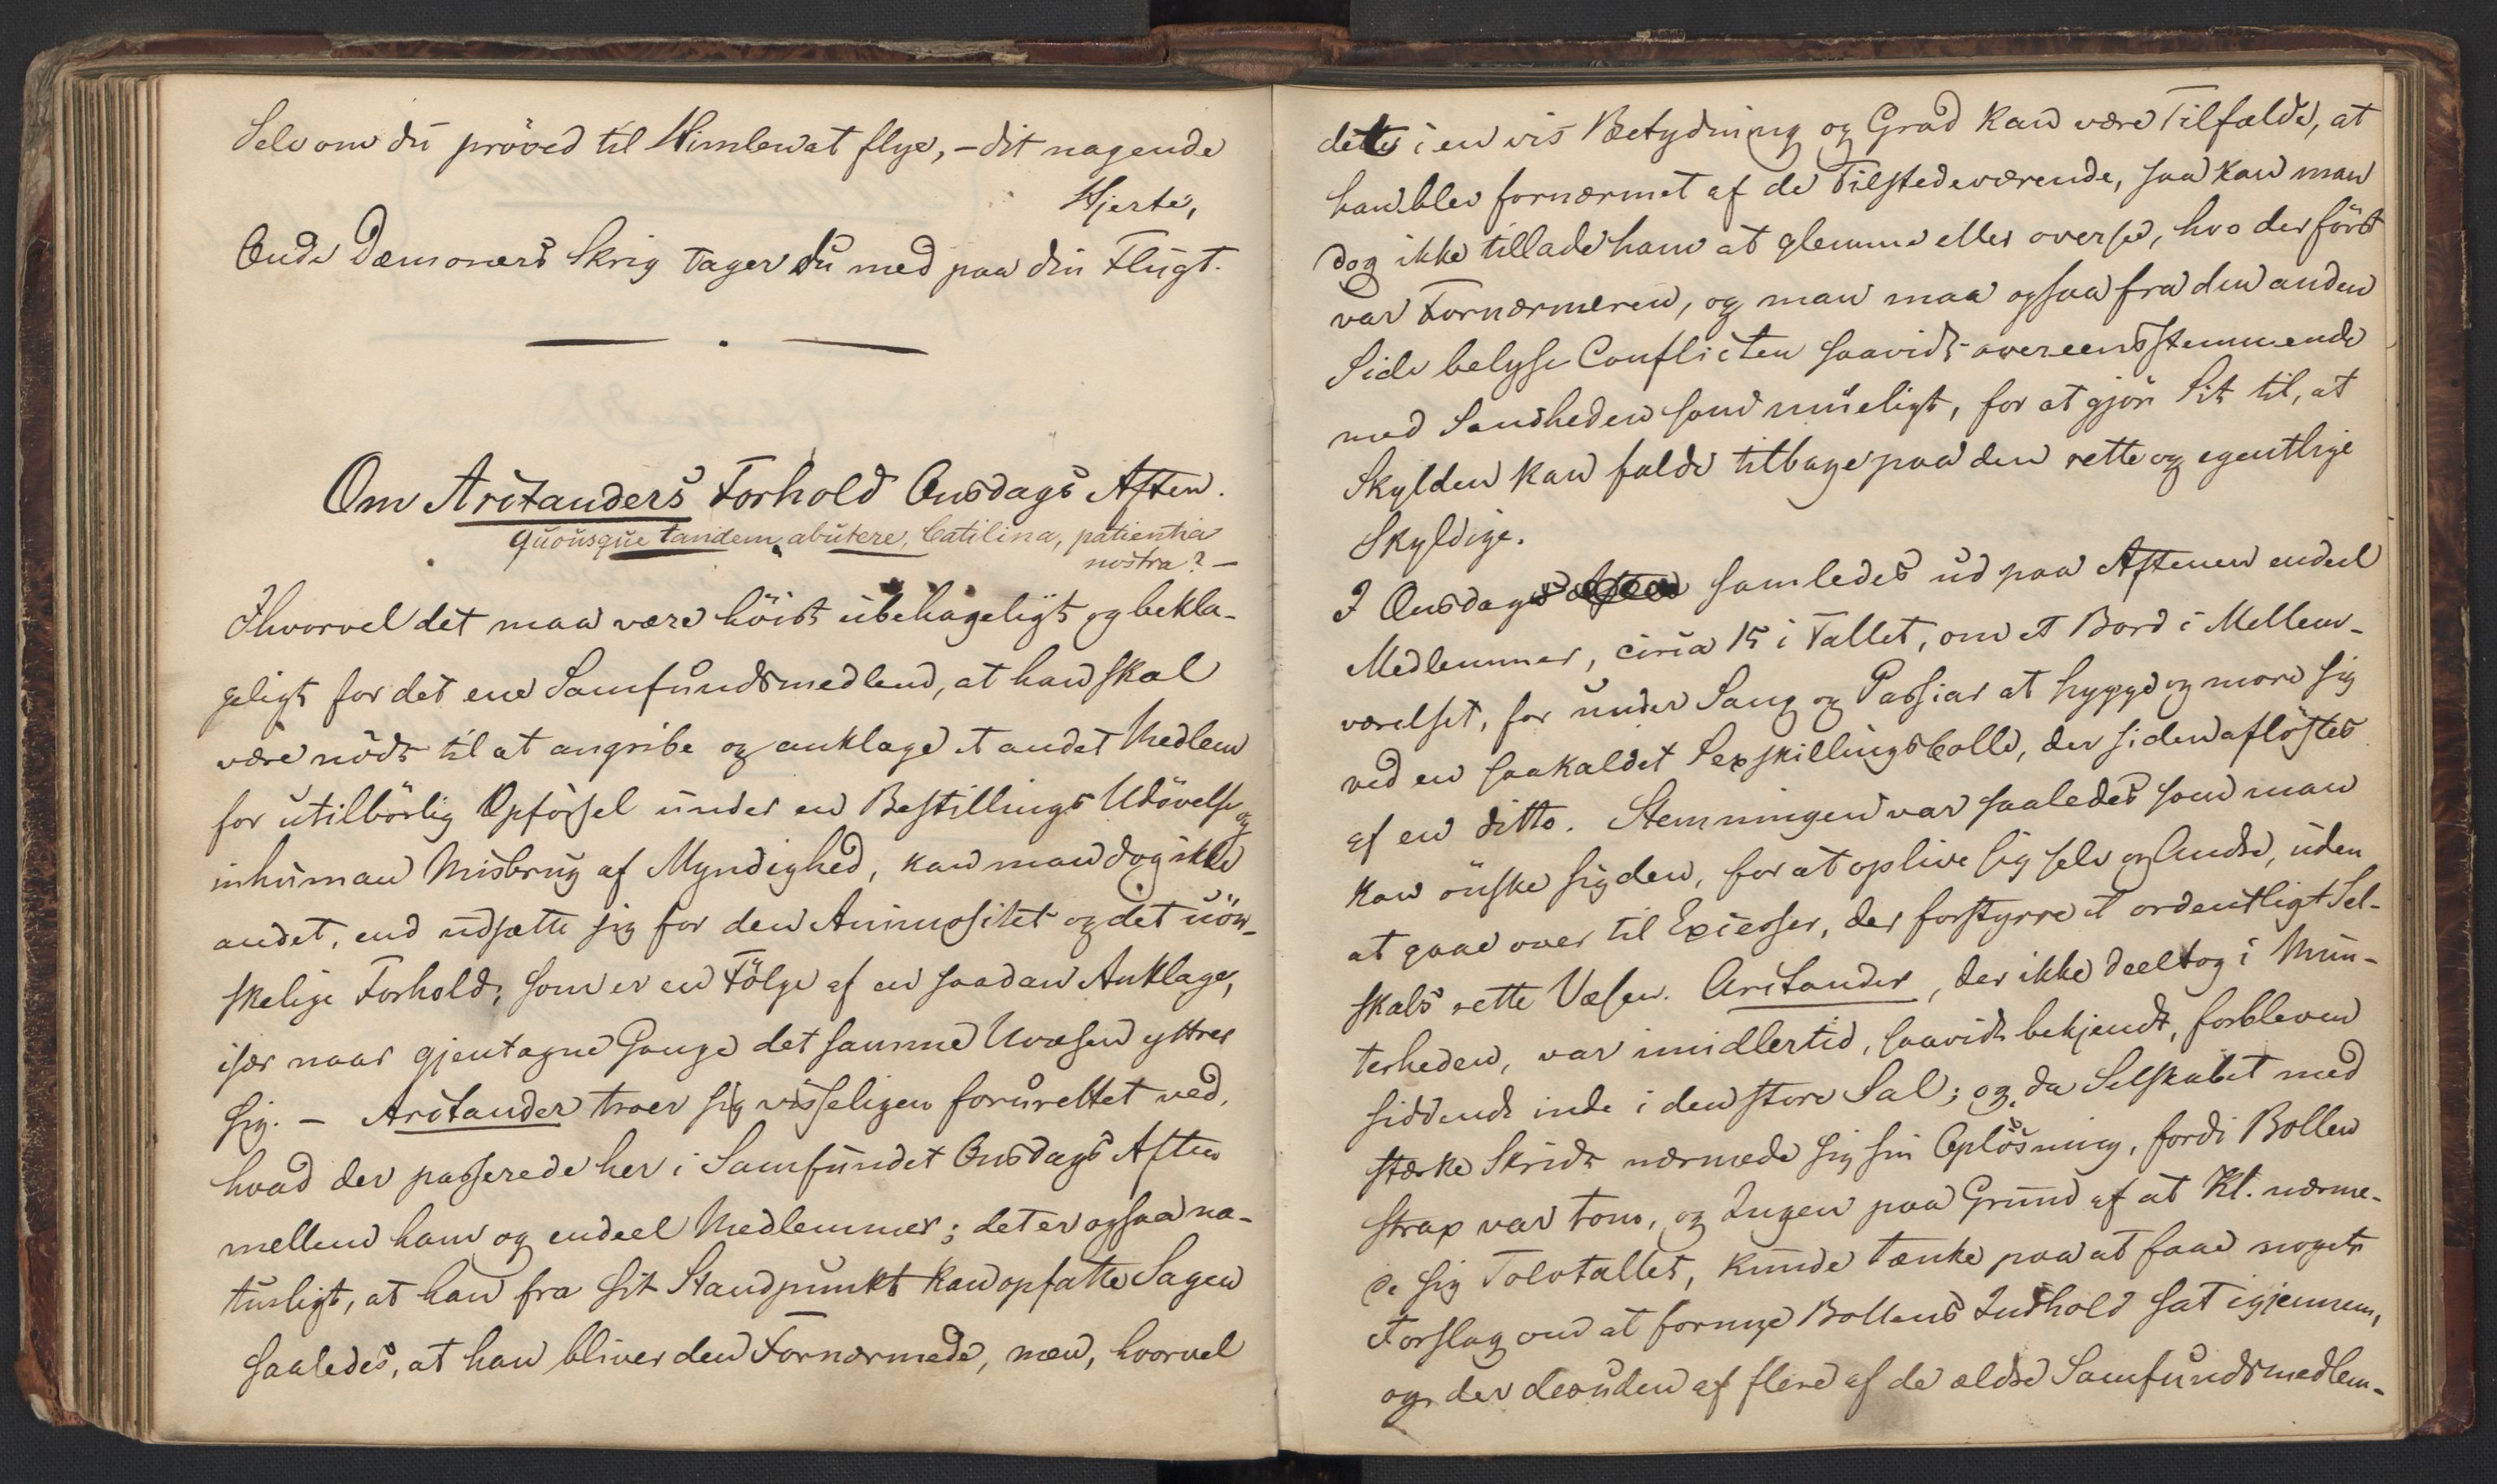 Selv om du prøved til Himlen at flye, – dit nagende
Hjerte,
Onde Dæmoners Skrig tager du med paa din Flugt.
Om Aristanders Forhold Onsdags Aften.
Quousque tandem abutere, Catilina, patientia
nostra? –
Ihvorvel det maa være höist ubehageligt og bekla-
geligt for det ene Samfundsmedlem, at han skal
være nödt til at angribe og anklage et andet Medlem
for utilbörlig Opförsel under en Bestillings Udövelse og
inhuman Misbrug af Myndighed, kan man dog ikke
andet, end udsætte sig for den Animositet og det uön-
skelige Forhold, som er en Fölge af en saadan Anklage,
især naar gjentagne Gange det samme Uvæsen yttrer
sig. – Aristander troer sig visseligen forurettet ved,
hvad der passerede her i Samfundet Onsdags Aften
mellem ham og endeel Medlemmer; det er ogsaa na-
turligt, at han fra sit Standpunkt kan opfatte Sagen
saaledes, at han bliver den Fornærmede, men, hvorvel
dette i en vis Betydning og Grad kan være Tilfælde, at
han blev fornærmet af de Tilstedeværende, saa kan man
dog ikke tillade ham at glemme eller oversee, hvo der först
var Fornærmeren, og man maa ogsaa fra den anden
Side belyse Conflicten saavidt overeensstemmende
med Sandheden som mueligt, for at gjöre Sit til, at
Skylden kan falde tilbage paa den rette og egentlige
Skyldige.
I Onsdags samledes ud paa Aftenen endeel
Medlemmer, circa 15 i Tallet, om et Bord i Mellem-
værelset, for under Sang og Passiar at hygge og more sig
ved en saakaldet Sexskillingsbolle, der siden aflöstes
af en ditto. Stemningen var saaledes som man
kan önske sig den, for at oplive sig selv og Andre, uden
at gaae over til Excesser, der forstyrre et ordentligt Sel-
skabs rette Væsen. Aristander, der ikke deeltog i Mun-
terheden, var imidlertid, saavidt bekjendt, forbleven
siddende inde i den store Sal; og da Selskabet med
stærke Skridt nærmede sig sin Oplösning, fordi Bollen
strax var tom, og Ingen paa Grund af at Kl. nærme-
de sig Tolvtallet, kunde tænke paa at faae noget
Forslag om at fornye Bollens Indhold sat igjennem,
og der desuden af flere af de ældre Samfundsmedlem-